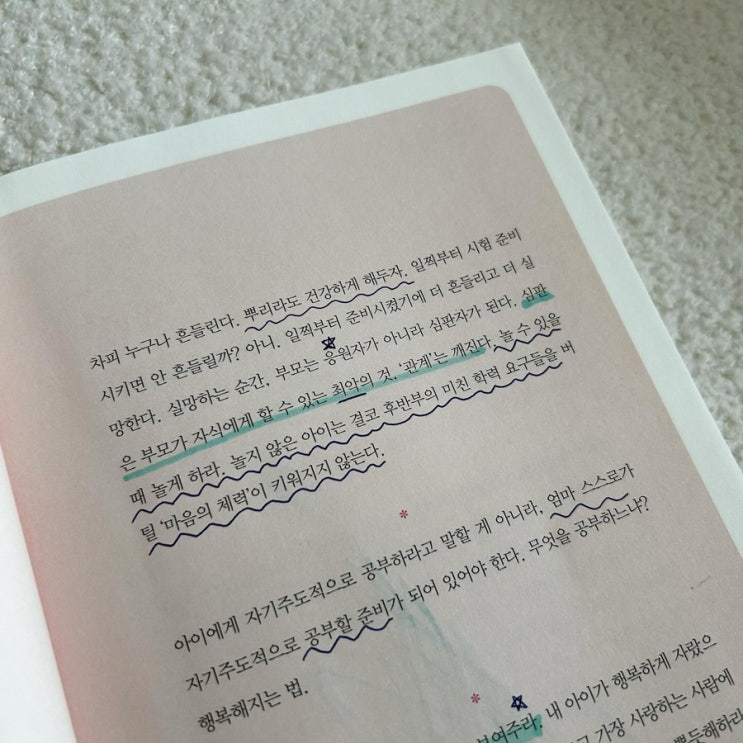 차피 누구나 흔들린다. 뿌리라도 건강하게 해두자. 일찍부터 시험 준비
시키면 안 흔들릴까? 아니. 일찍부터 준비시켰기에 더 흔들리고 더 실
망한다. 실망하는 순간, 부모는 응원자가 아니라 심판자가 된다. 심판
은 부모가 자식에게 할 수 있는 최악의 것. ‘관계’는 깨진다. 놀 수 있을
때 놀게 하라. 놀지 않은 아이는 결코 후반부의 미친 학력 요구들을 버
틸 ‘마음의 체력’이 키워지지 않는다.
*
아이에게 자기주도적으로 공부하라고 말할 게 아니라, 엄마 스스로가
자기주도적으로 공부할 준비가 되어 있어야 한다. 무엇을 공부하느냐?
행복해지는 법.
*
보여주라. 내 아이가 행복하게 자랐으
고 가장 사랑하는 사람에
뿌듯해하라